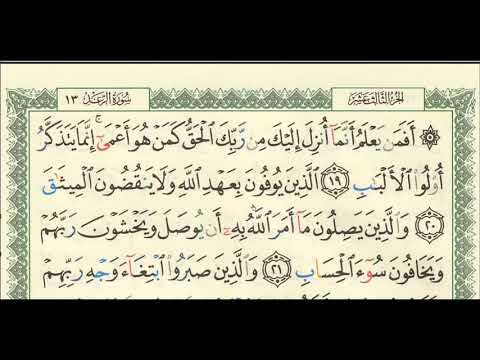 سُورَةُ الرَّعْدِ ١٣
الجُزْءُ الثَّالِثَ عَشَرَ
۞ أَفَمَن يَعْلَمُ أَنَّمَآ أُنزِلَ إِلَيْكَ مِن رَّبِّكَ الْحَقُّ كَمَنْ هُوَ أَعْمَىٰٓ ۚ إِنَّمَا يَتَذَكَّرُ
أُوْلُوا۟ الْأَلْبَٰبِ ١٩ الَّذِينَ يُوفُونَ بِعَهْدِ اللَّهِ وَلَا يَنقُضُونَ الْمِيثَٰقَ
٢٠ وَالَّذِينَ يَصِلُونَ مَآ أَمَرَ اللَّهُ بِهِۦٓ أَن يُوصَلَ وَيَخْشَوْنَ رَبَّهُمْ
وَيَخَافُونَ سُوٓءَ الْحِسَابِ ٢١ وَالَّذِينَ صَبَرُوا۟ ابْتِغَآءَ وَجْهِ رَبِّهِمْ